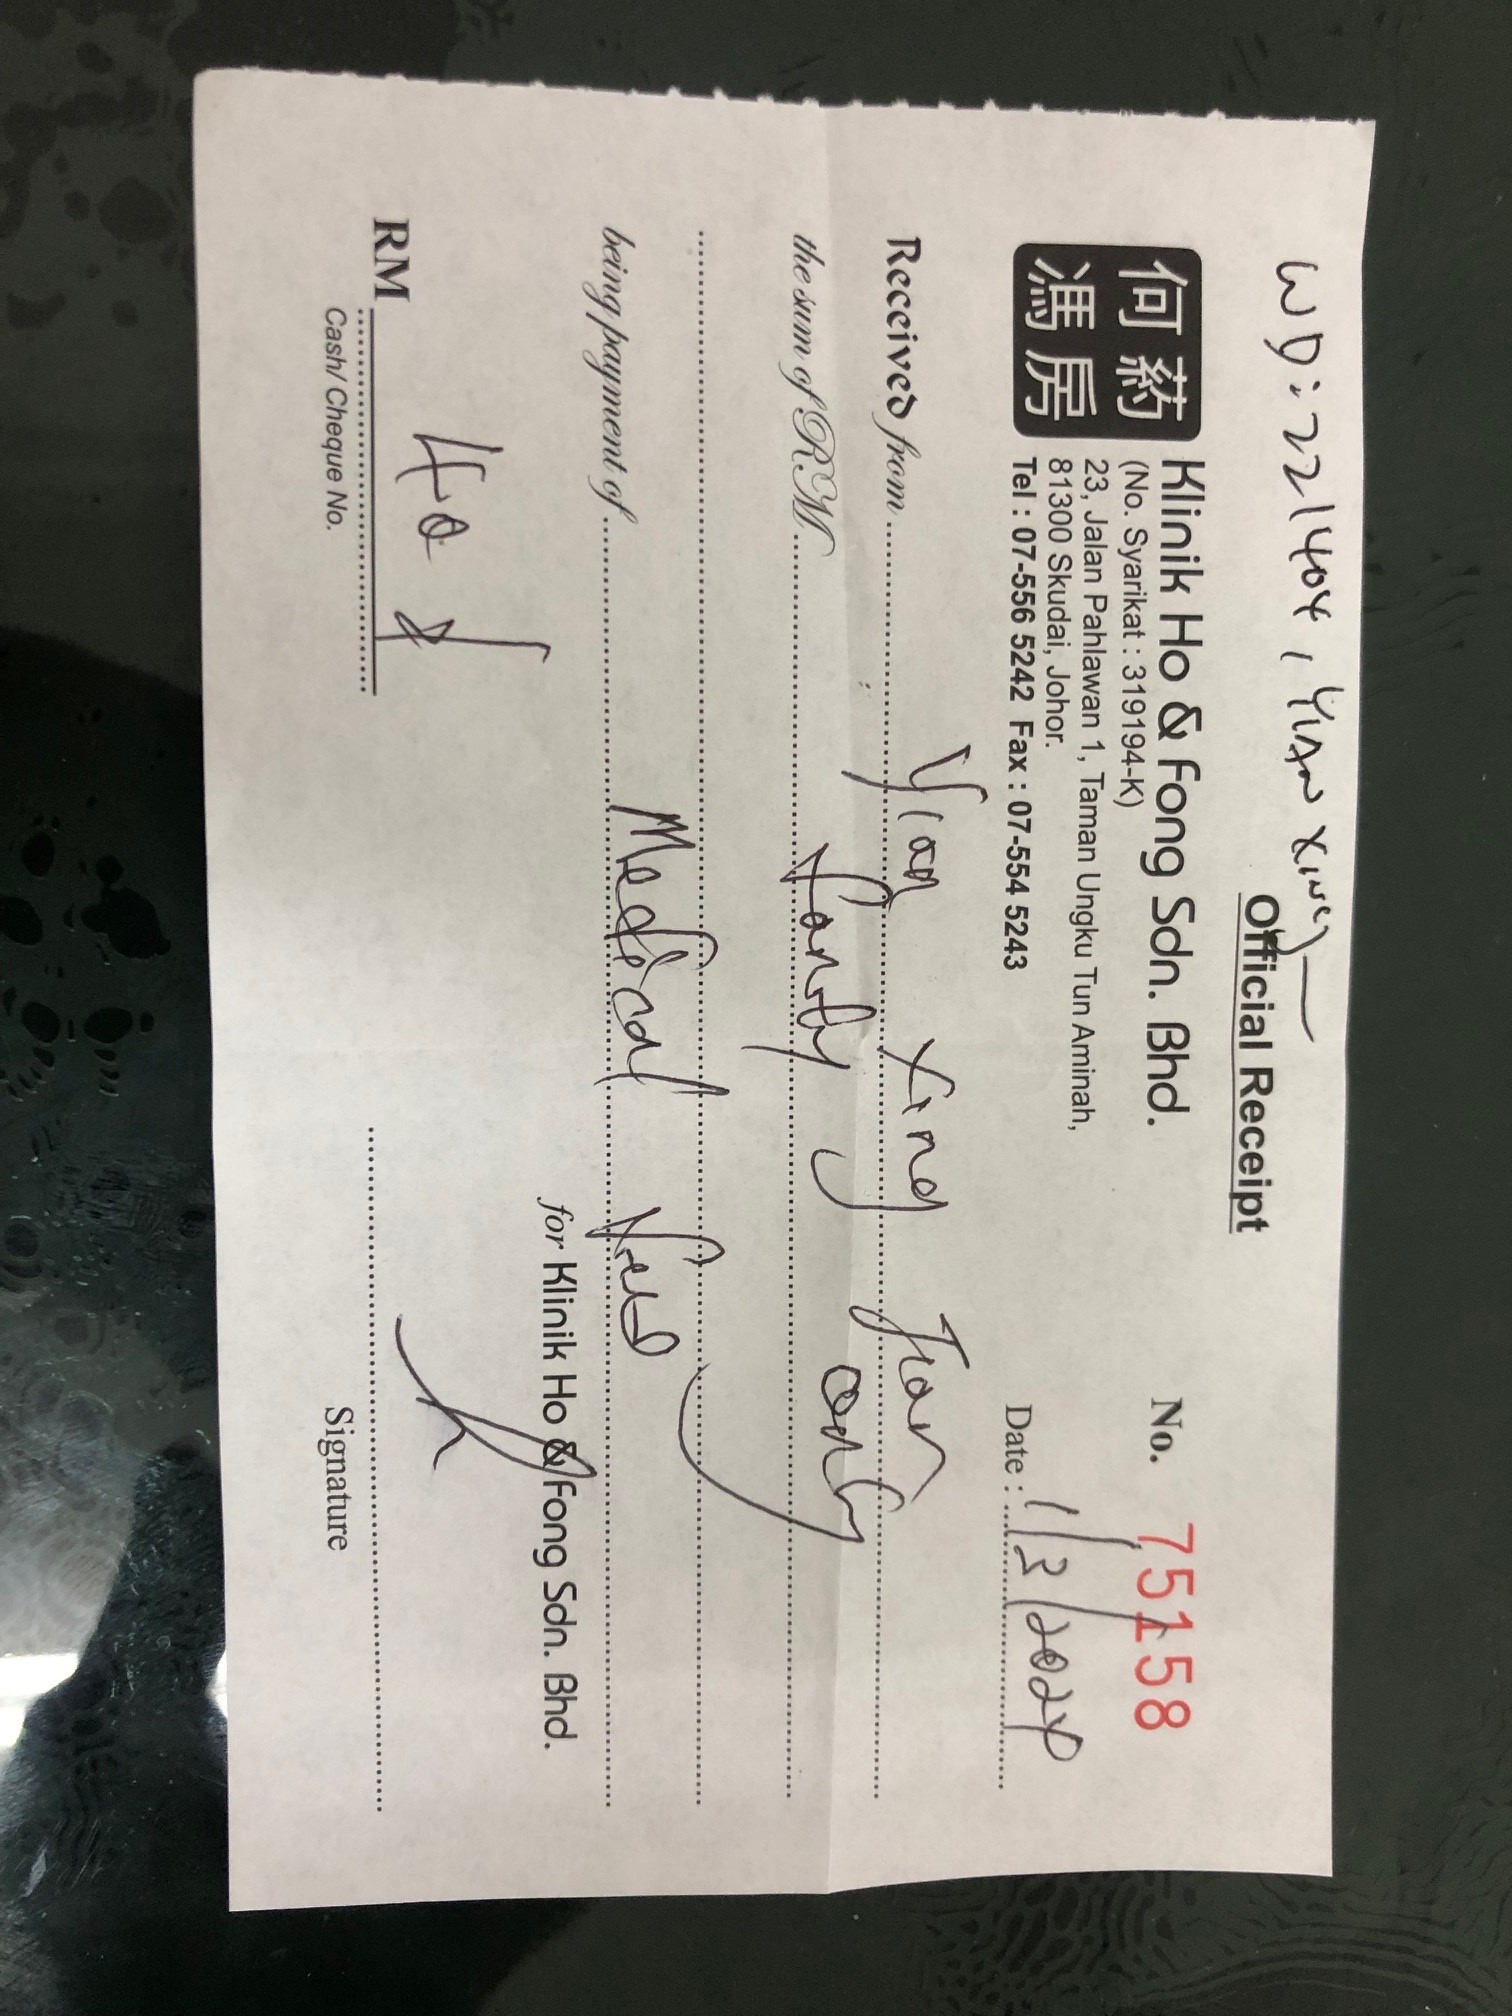 WD: 221404, YIAN XING
Official Receipt
何药
馮房
Klinik Ho & Fong Sdn. Bhd.
(No. Syarikat : 319194-K)
23, Jalan Pahlawan 1, Taman Ungku Tun Aminah,
81300 Skudai, Johor.
Tel : 07-556 5242 Fax : 07-554 5243
No. 75158
Date : 1/3/2024
Received from Xing
the sum of RM Forty only
being payment of Medical
for Klinik Ho & Fong Sdn. Bhd.
RM 40
Cash/ Cheque No.
Signature